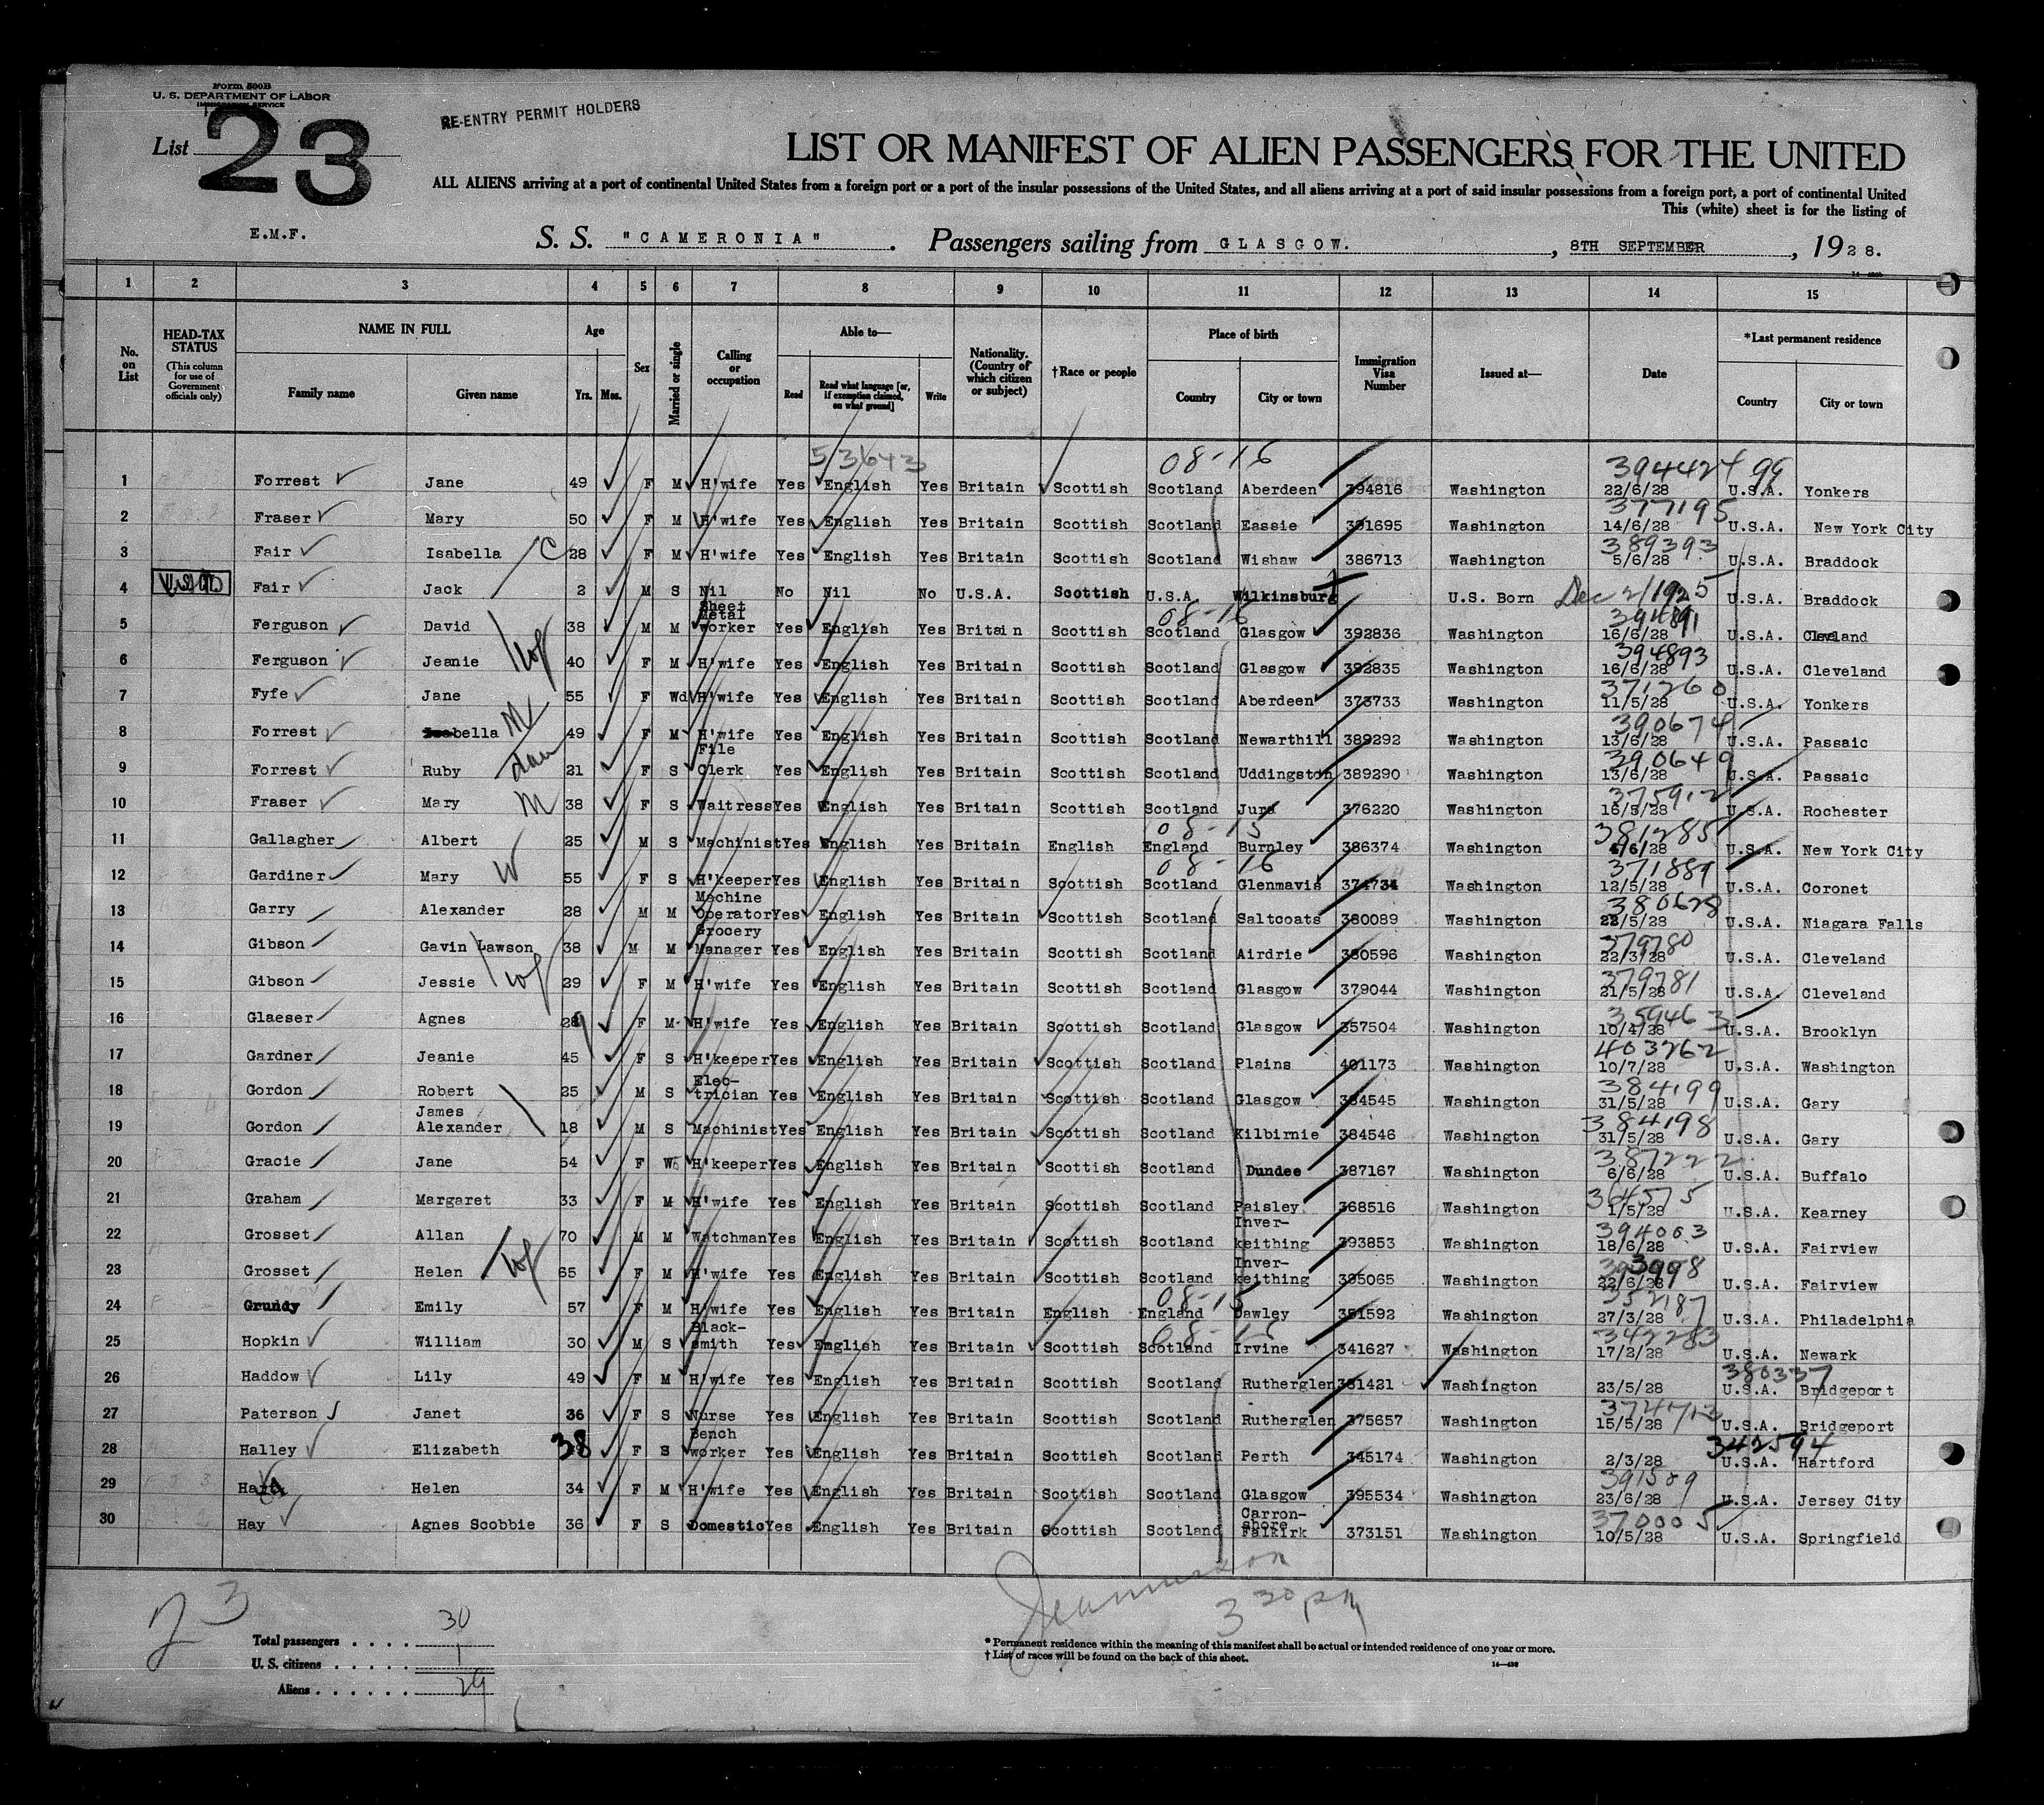 Form 500B
U. S. DEPARTMENT OF LABOR
IMMIGRATION SERVICE
RE-ENTRY PERMIT HOLDERS
List 23
LIST OR MANIFEST OF ALIEN PASSENGERS FOR THE UNITED
ALL ALIENS arriving at a port of continental United States from a foreign port or a port of the insular possessions of the United States, and all aliens arriving at a port of said insular possessions from a foreign port, a port of continental United
This (white) sheet is for the listing of
E.M.F.
S. S. "CAMERONIA". Passengers sailing from GLASGOW., 8TH SEPTEMBER, 1928.
1 2 3 4 5 6 7 8 9 10 11 12 13 14 15
No. on List
HEAD-TAX STATUS (This column for use of Government officials only)
NAME IN FULL Family name Given name
Age Yrs. Mos.
Sex
Married or single
Calling or occupation
Able to— Read Read what language [or, if exemption claimed, on what ground] Write
Nationality. (Country of which citizen or subject)
†Race or people
Place of birth Country City or town
Immigration Visa Number
Issued at—
Date
*Last permanent residence Country City or town
53643 08-16 394424 99
1 Forrest Jane 49 F M H'wife Yes English Yes Britain Scottish Scotland Aberdeen 394816 Washington 22/6/28 U.S.A. Yonkers
377195
2 Fraser Mary 50 F M H'wife Yes English Yes Britain Scottish Scotland Eassie 391695 Washington 14/6/28 U.S.A. New York City
389393
3 Fair Isabella 28 F M H'wife Yes English Yes Britain Scottish Scotland Wishaw 386713 Washington 5/6/28 U.S.A. Braddock
4 Fair Jack 2 M S Nil No Nil No U.S.A. Scottish U.S.A. Wilkinsburg U.S. Born Dec 2/1925 U.S.A. Braddock
08-16 394891
5 Ferguson David 38 M M Sheet Metal worker Yes English Yes Britain Scottish Scotland Glasgow 392836 Washington 16/6/28 U.S.A. Cleveland
394893
6 Ferguson Jeanie 40 F M H'wife Yes English Yes Britain Scottish Scotland Glasgow 392835 Washington 16/6/28 U.S.A. Cleveland
371260
7 Fyfe Jane 55 F Wd H'wife Yes English Yes Britain Scottish Scotland Aberdeen 373733 Washington 11/5/28 U.S.A. Yonkers
390674
8 Forrest Isabella 49 F M H'wife Yes English Yes Britain Scottish Scotland Newarthill 389292 Washington 13/6/28 U.S.A. Passaic
390649
9 Forrest Ruby 21 F S File Clerk Yes English Yes Britain Scottish Scotland Uddingston 389290 Washington 13/6/28 U.S.A. Passaic
375912
10 Fraser Mary 38 F S Waitress Yes English Yes Britain Scottish Scotland Jura 376220 Washington 16/5/28 U.S.A. Rochester
08-15 381285
11 Gallagher Albert 25 M S Machinist Yes English Yes Britain English England Burnley 386374 Washington 4/6/28 U.S.A. New York City
08-16 371889
12 Gardiner Mary 55 F S H'keeper Yes English Yes Britain Scottish Scotland Glenmavis 374734 Washington 12/5/28 U.S.A. Coronet
380628
13 Garry Alexander 28 M M Machine Operator Yes English Yes Britain Scottish Scotland Saltcoats 380089 Washington 22/5/28 U.S.A. Niagara Falls
379780
14 Gibson Gavin Lawson 38 M M Grocery Manager Yes English Yes Britain Scottish Scotland Airdrie 380596 Washington 22/3/28 U.S.A. Cleveland
379781
15 Gibson Jessie 29 F M H'wife Yes English Yes Britain Scottish Scotland Glasgow 379044 Washington 21/5/28 U.S.A. Cleveland
359463
16 Glaeser Agnes F M H'wife Yes English Yes Britain Scottish Scotland Glasgow 357504 Washington 10/4/28 U.S.A. Brooklyn
403262
17 Gardner Jeanie 45 F S H'keeper Yes English Yes Britain Scottish Scotland Plains 401173 Washington 10/7/28 U.S.A. Washington
384199
18 Gordon Robert 25 M S Elec-trician Yes English Yes Britain Scottish Scotland Glasgow 384545 Washington 31/5/28 U.S.A. Gary
384198
19 Gordon James Alexander 18 M S Machinist Yes English Yes Britain Scottish Scotland Kilbirnie 384546 Washington 31/5/28 U.S.A. Gary
387222
20 Gracie Jane 54 F Wd H'keeper Yes English Yes Britain Scottish Scotland Dundee 387167 Washington 6/6/28 U.S.A. Buffalo
364575
21 Graham Margaret 33 F M H'wife Yes English Yes Britain Scottish Scotland Paisley 368516 Washington 1/5/28 U.S.A. Kearney
394003
22 Grosset Allan 70 M M Watchman Yes English Yes Britain Scottish Scotland Inver-keithing 393853 Washington 18/6/28 U.S.A. Fairview
393998
23 Grosset Helen 65 F M H'wife Yes English Yes Britain Scottish Scotland Inver-keithing 395065 Washington 22/6/28 U.S.A. Fairview
08-15 352187
24 Grundy Emily 57 F M H'wife Yes English Yes Britain English England Dawley 351592 Washington 27/3/28 U.S.A. Philadelphia
08-16 342283
25 Hopkin William 30 M S Black-smith Yes English Yes Britain Scottish Scotland Irvine 341627 Washington 17/2/28 U.S.A. Newark
380337
26 Haddow Lily 49 F M H'wife Yes English Yes Britain Scottish Scotland Rutherglen 381421 Washington 23/5/28 U.S.A. Bridgeport
27 Paterson Janet 36 F S Nurse Yes English Yes Britain Scottish Scotland Rutherglen 375657 Washington 15/5/28 U.S.A. Bridgeport
342594
28 Halley Elizabeth 38 F S Bench worker Yes English Yes Britain Scottish Scotland Perth 345174 Washington 2/3/28 U.S.A. Hartford
391589
29 Helen 34 F M H'wife Yes English Yes Britain Scottish Scotland Glasgow 395534 Washington 23/6/28 U.S.A. Jersey City
370005
30 Hay Agnes Scobbie 36 F S Domestic Yes English Yes Britain Scottish Scotland Carron-shore Falkirk 373151 Washington 10/5/28 U.S.A. Springfield
23
3 30 PM
Total passengers .... 30
U. S. citizens ..... 1
Aliens ...... 29
* Permanent residence within the meaning of this manifest shall be actual or intended residence of one year or more.
† List of races will be found on the back of this sheet.